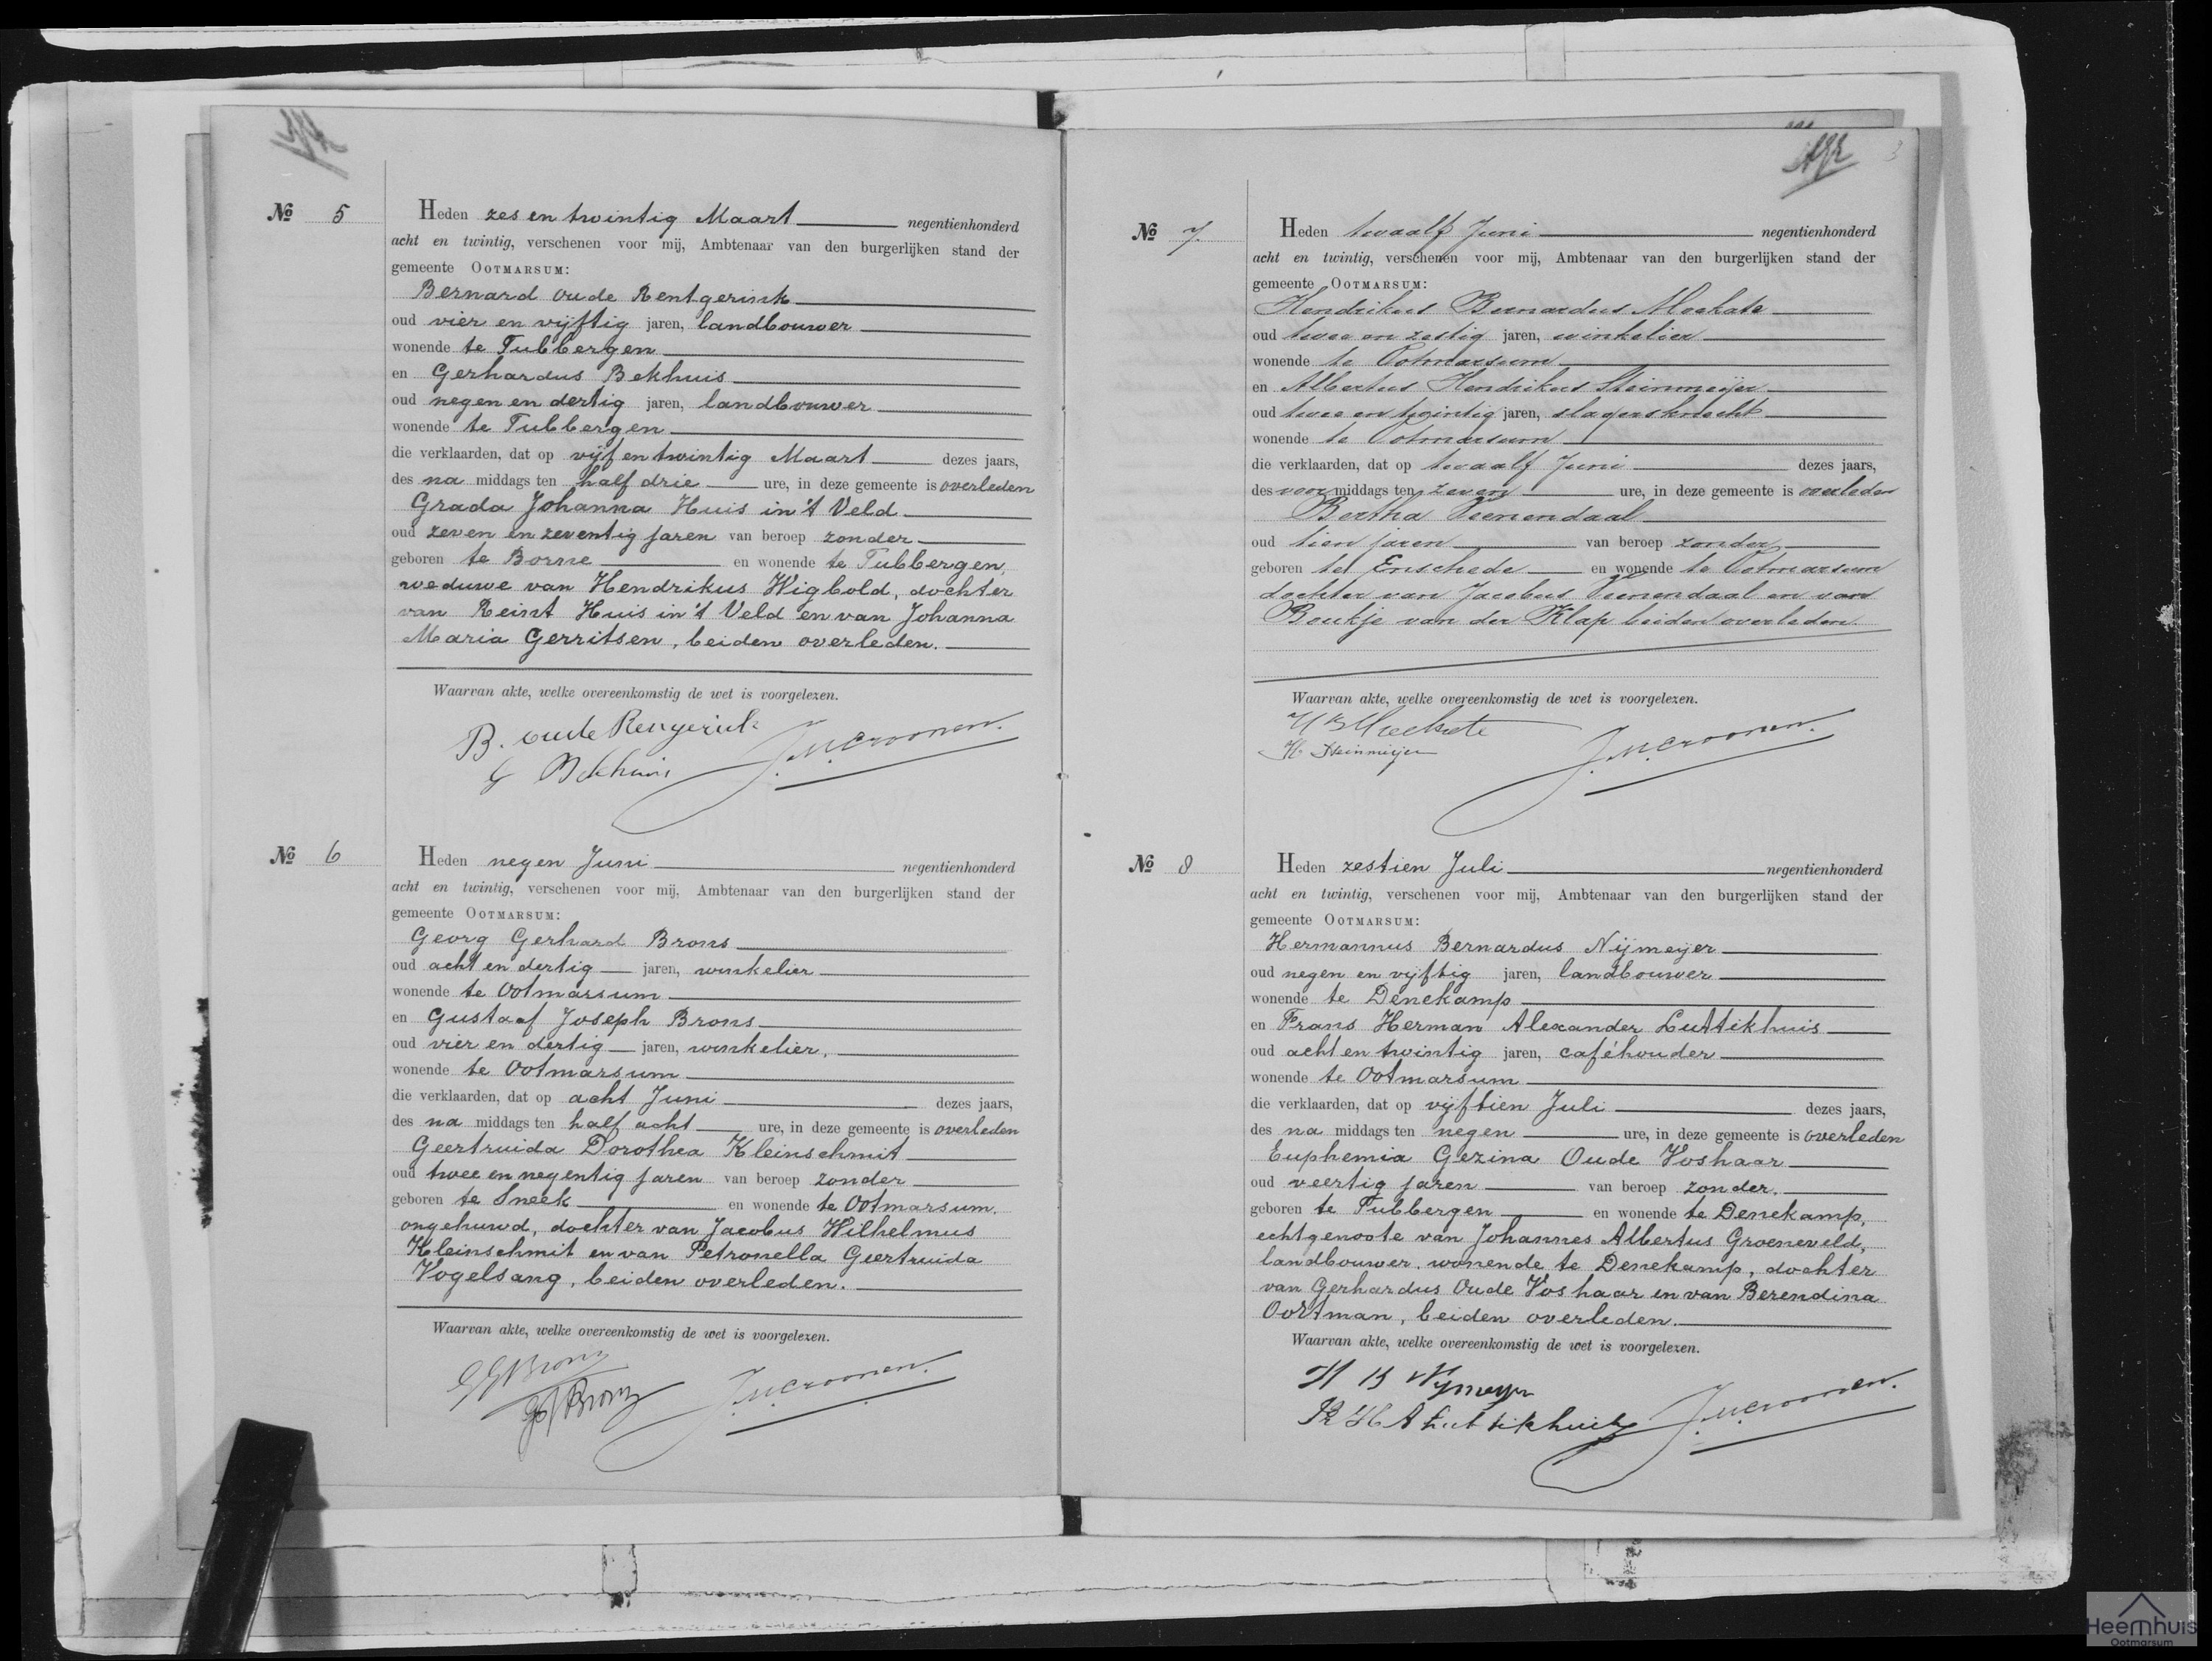 № 5
Heden zes en twintig Maart negentienhonderd
acht en twintig, verschenen voor mij, Ambtenaar van den burgerlijken stand der
gemeente OOTMARSUM:
Bernard oude Rentgerink
oud vier en vijftig jaren, landbouwer
wonende te Tubbergen
en Gerhardus Bekhuis
oud negen en dertig jaren, landbouwer
wonende te Tubbergen
die verklaarden, dat op vijf en twintig Maart dezes jaars,
des na middags ten half drie ure, in deze gemeente is overleden
Grada Johanna Huis in 't Veld
oud zeven en zeventig jaren van beroep zonder
geboren te Borne en wonende te Tubbergen,
weduwe van Hendrikus Wigbold, dochter
van Reint Huis in 't Veld en van Johanna
Maria Gerritsen, beiden overleden.
Waarvan akte, welke overeenkomstig de wet is voorgelezen.
B. oude Rengerink
G Bekhuis J.M. Croonen.
№ 6
Heden negen Juni negentienhonderd
acht en twintig, verschenen voor mij, Ambtenaar van den burgerlijken stand der
gemeente OOTMARSUM:
Georg Gerhard Brons
oud acht en dertig jaren, winkelier
wonende te Ootmarsum
en Gustaaf Joseph Brons
oud vier en dertig jaren, winkelier,
wonende te Ootmarsum
die verklaarden, dat op acht Juni dezes jaars,
des na middags ten half acht ure, in deze gemeente is overleden
Geertruida Dorothea Kleinschmit
oud twee en negentig jaren van beroep zonder
geboren te Sneek en wonende te Ootmarsum,
ongehuwd, dochter van Jacobus Wilhelmus
Kleinschmit en van Petronella Geertruida
Vogelsang, beiden overleden.
Waarvan akte, welke overeenkomstig de wet is voorgelezen.
GG Brons
GJ Brons J.M. Croonen.
3
№ 7.
Heden twaalf Juni negentienhonderd
acht en twintig, verschenen voor mij, Ambtenaar van den burgerlijken stand der
gemeente OOTMARSUM:
Hendrikus Bernardus Meekate
oud twee en zestig jaren, winkelier
wonende te Ootmarsum
en Albertus Hendrikus Steinmeijer
oud twee en twintig jaren, slagersknecht
wonende te Ootmarsum
die verklaarden, dat op twaalf Juni dezes jaars,
des voor middags ten zeven ure, in deze gemeente is overleden
Bertha Veenendaal
oud tien jaren van beroep zonder
geboren te Enschede en wonende te Ootmarsum
dochter van Jacobus Veenendaal en van
Boukje van der Klap beiden overleden
Waarvan akte, welke overeenkomstig de wet is voorgelezen.
H B Meekate
H Steinmeijer J.M. Croonen.
№ 8
Heden zestien Juli negentienhonderd
acht en twintig, verschenen voor mij, Ambtenaar van den burgerlijken stand der
gemeente OOTMARSUM:
Hermannus Bernardus Nijmeijer
oud negen en vijftig jaren, landbouwer
wonende te Denekamp
en Frans Herman Alexander Luttikhuis
oud acht en twintig jaren, caféhouder
wonende te Ootmarsum
die verklaarden, dat op vijftien Juli dezes jaars,
des na middags ten negen ure, in deze gemeente is overleden
Euphemia Gezina Oude Voshaar
oud veertig jaren van beroep zonder.
geboren te Tubbergen en wonende te Denekamp,
echtgenoote van Johannes Albertus Groeneveld,
landbouwer, wonende te Denekamp, dochter
van Gerhardus Oude Voshaar en van Berendina
Oortman, beiden overleden.
Waarvan akte, welke overeenkomstig de wet is voorgelezen.
H B Nijmeijer
H A Luttikhuis J.M. Croonen.
Heemhuis
Ootmarsum